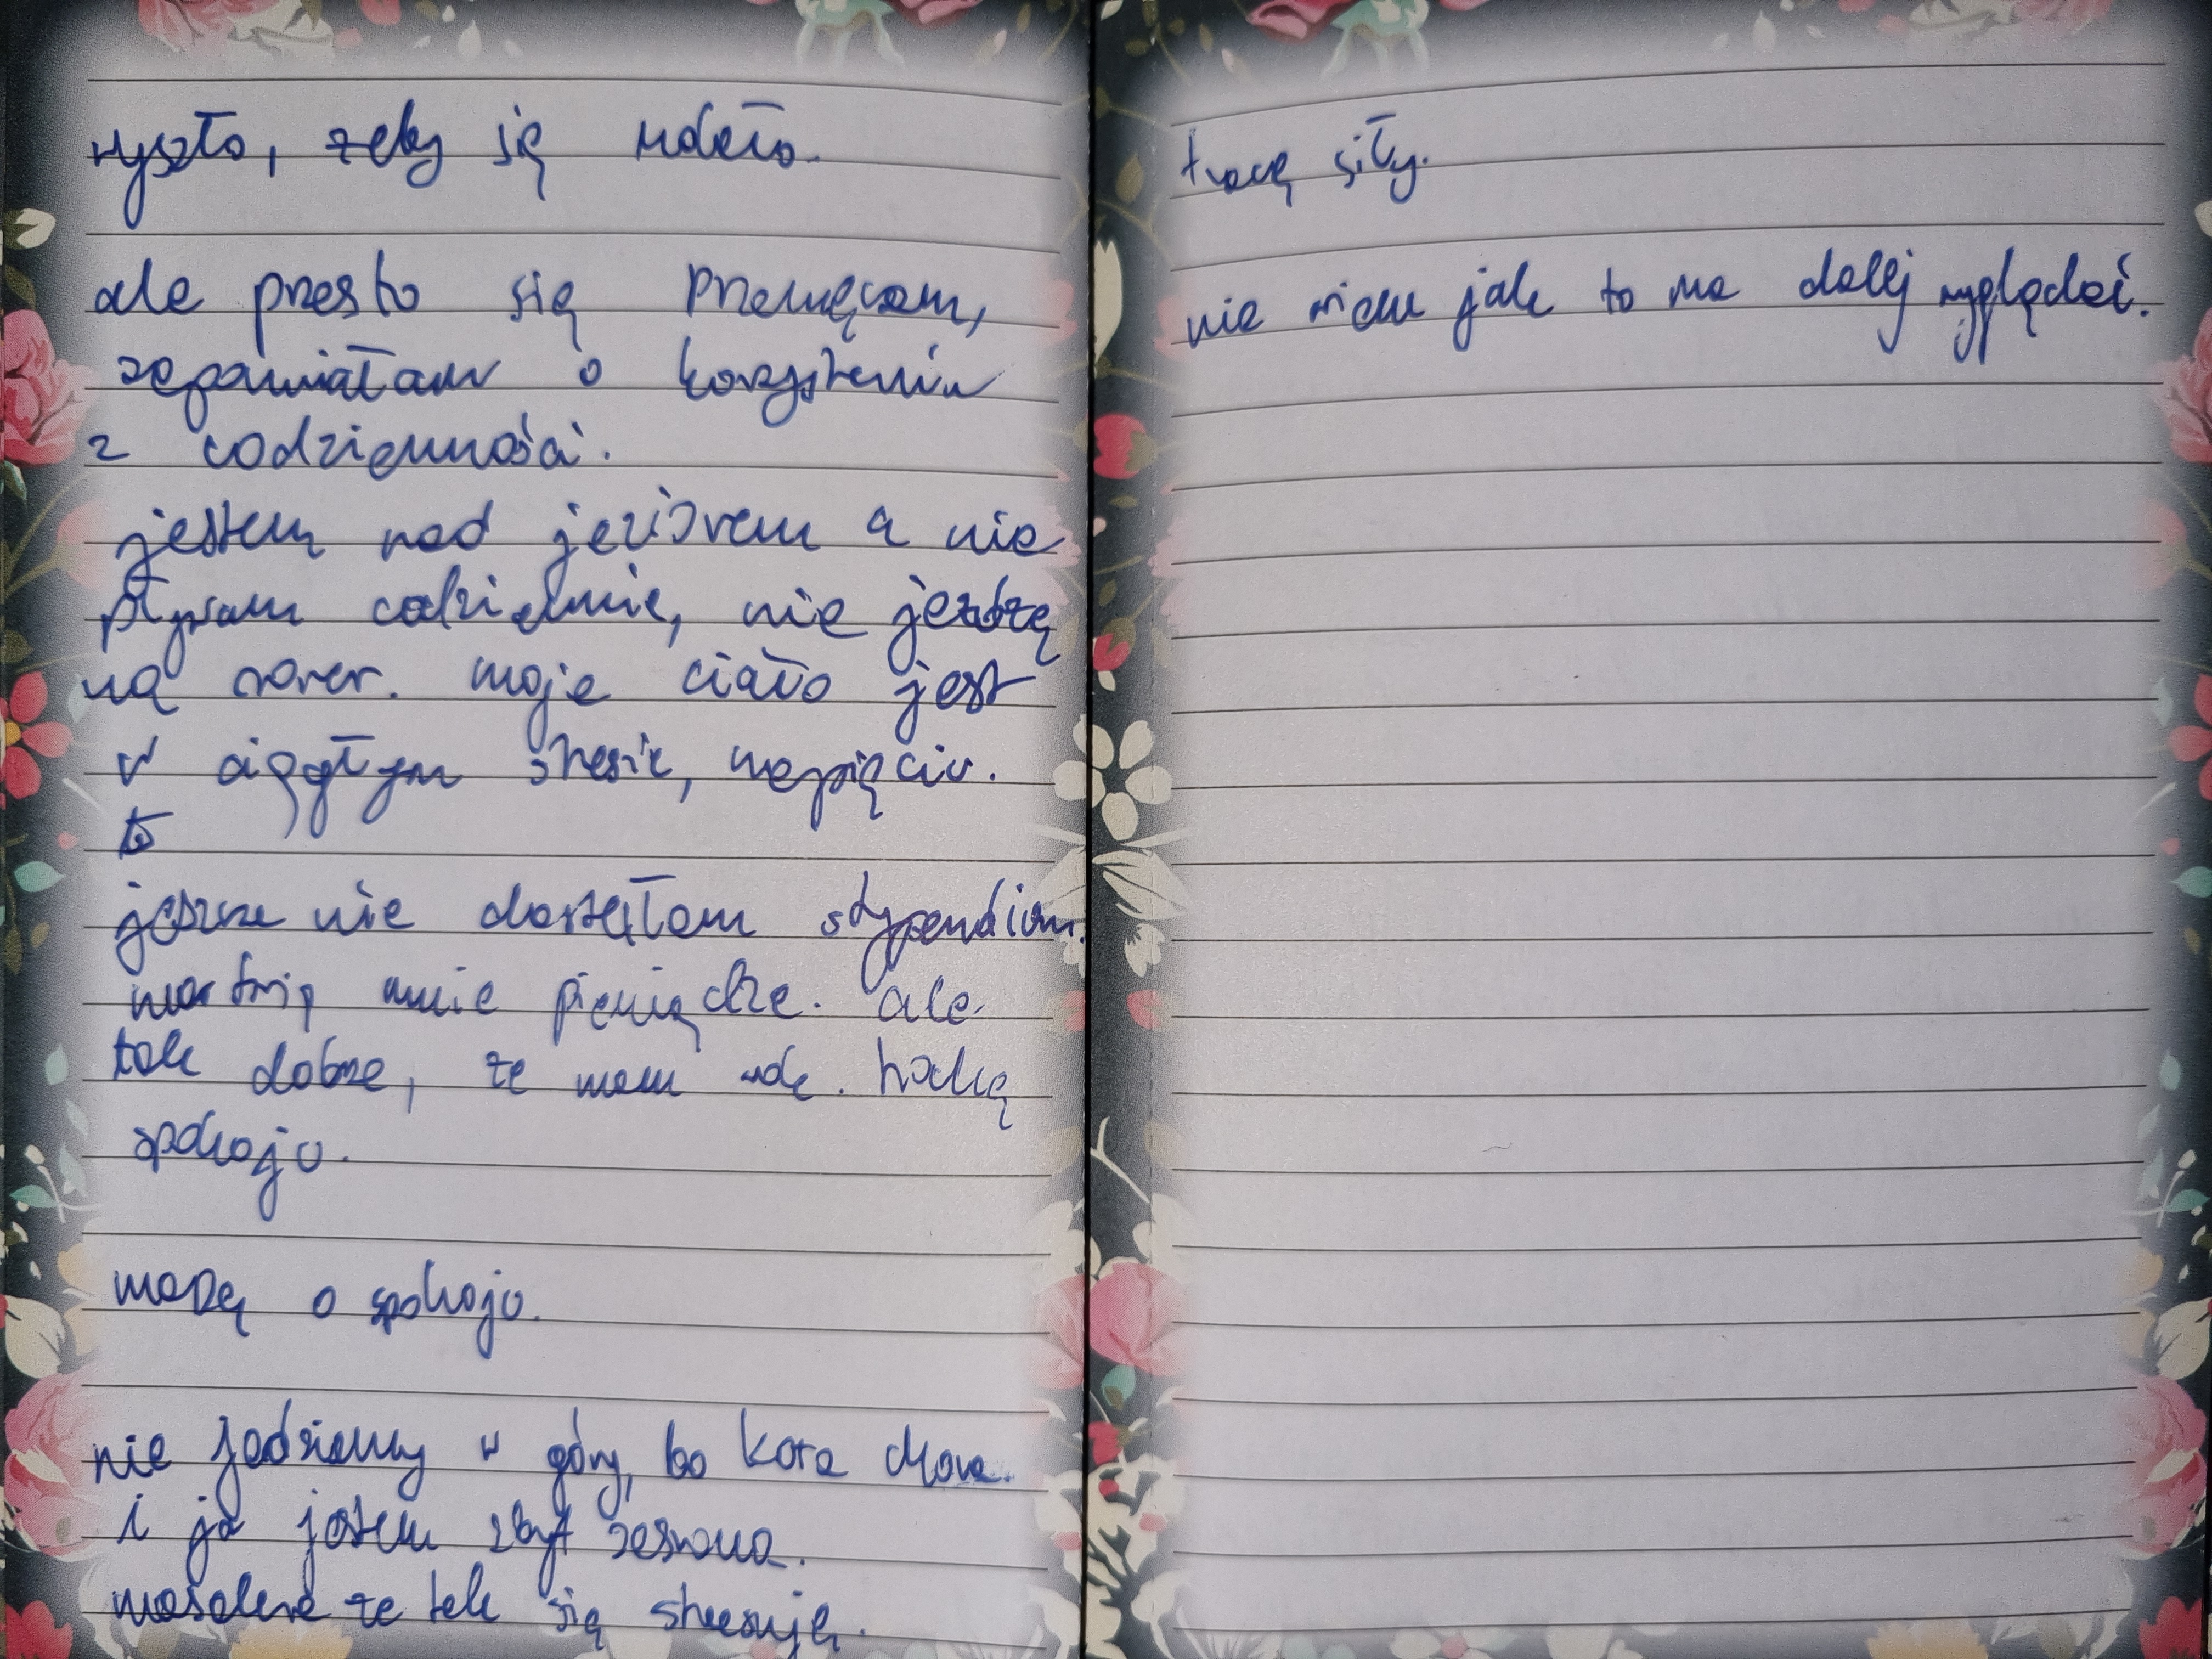 wyszło, żeby się udało.
ale przesto się przemęczam,
zapomniałam o korzystaniu
z codzienności.
jestem nad jeziorem a nie
pływam codziennie, nie jeżdżę
na rower. moje ciało jest
w ciągłym stresie, napięciu.
to
jeszcze nie dostałam stypendium.
martwią mnie pieniądze. ale
tak dobrze, że mam
spokoju.
marzę o spokoju.
nie jedziemy w góry, bo kota chora.
i ja jestem zbyt zesrana.
masakra że tak się stresuję.
tracę siły.
nie wiem jak to ma dalej wyglądać.